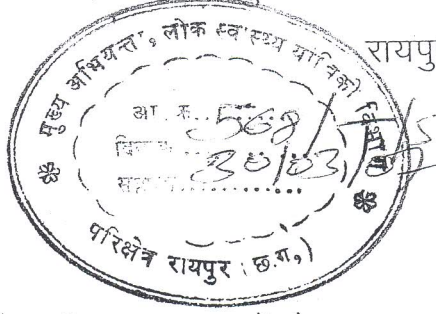 रायपु
मुख्य अभियन्ता, लोक स्वास्थ्य यांत्रिकी विभाग
आ. क्र. 568
दिनांक 30/03/
परिक्षेत्र रायपुर (छ.ग.)